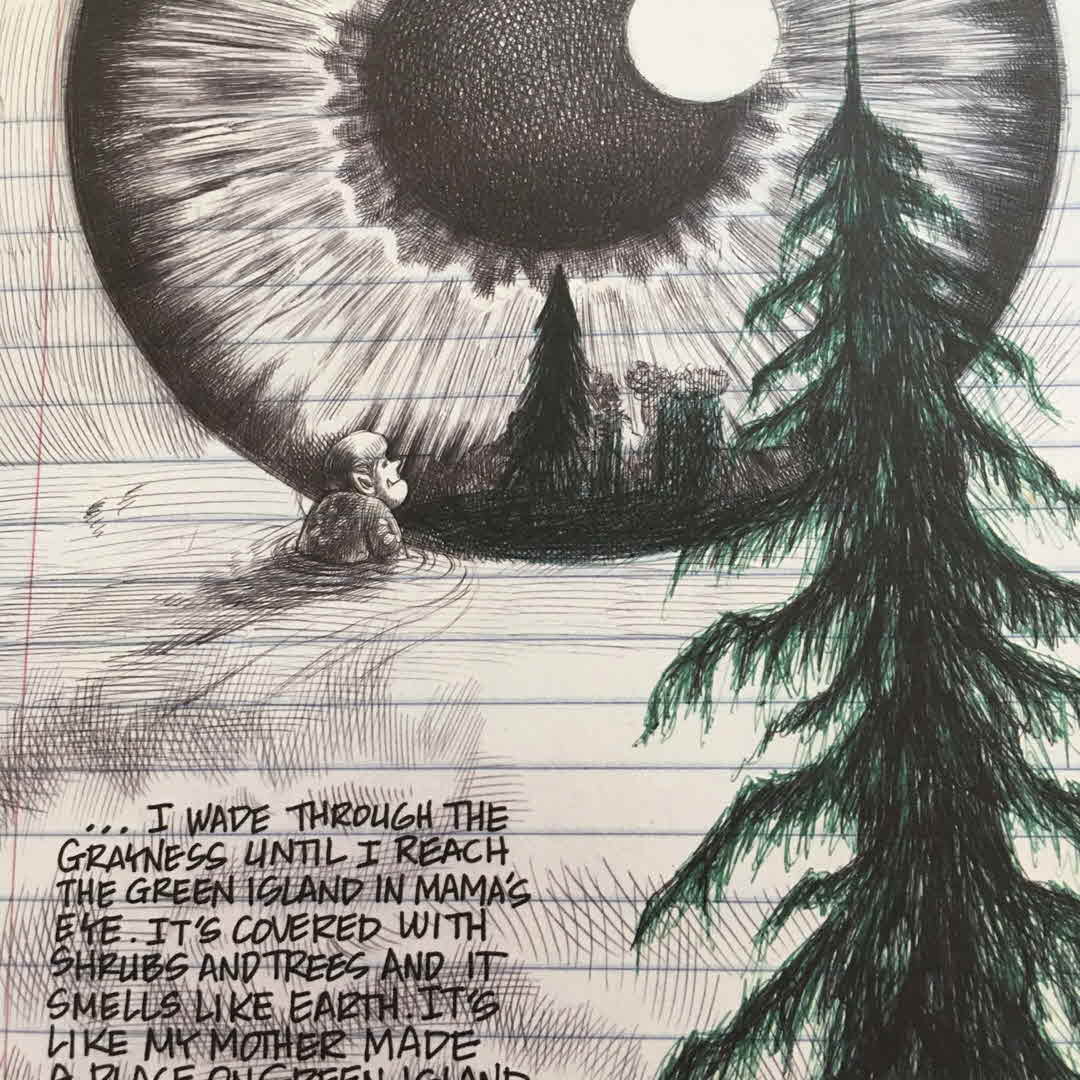 ... I WADE THROUGH THE
GRAYNESS UNTIL I REACH
THE GREEN ISLAND IN MAMA'S
EYE. IT'S COVERED WITH
SHRUBS AND TREES AND IT
SMELLS LIKE EARTH. IT'S
LIKE MY MOTHER MADE
A PLACE ON GREEN ISLAND